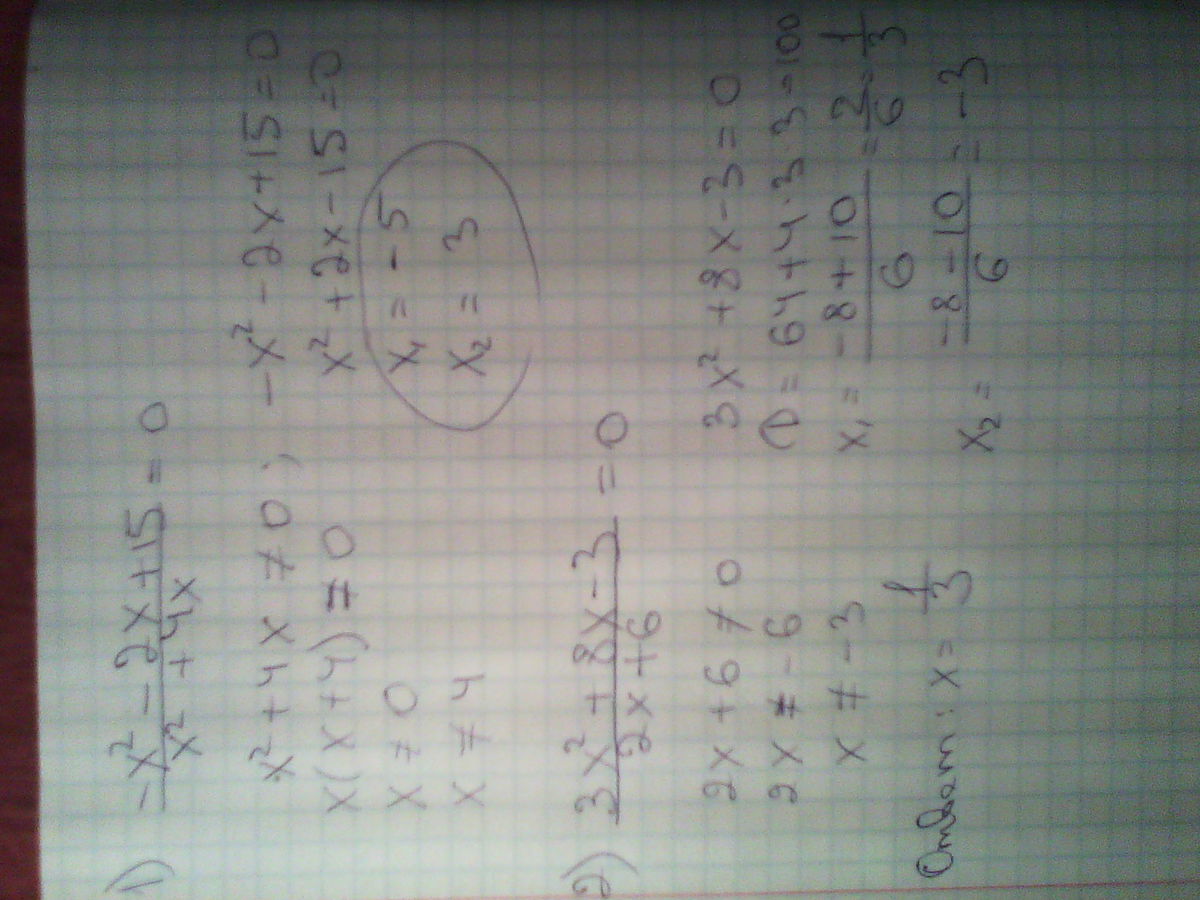 1) (-x² - 2x + 15)/(x² + 4x) = 0
x² + 4x ≠ 0; -x² - 2x + 15 = 0
x(x + 4) ≠ 0 x² + 2x - 15 = 0
x ≠ 0 x₁ = -5
x ≠ 4 x₂ = 3
2) (3x² + 8x - 3)/(2x + 6) = 0
2x + 6 ≠ 0 3x² + 8x - 3 = 0
2x ≠ -6 D = 64 + 4·3·3 = 100
x ≠ -3 x₁ = (-8 + 10)/6 = 2/6 = 1/3
Ответ: x = 1/3 x₂ = (-8 - 10)/6 = -3